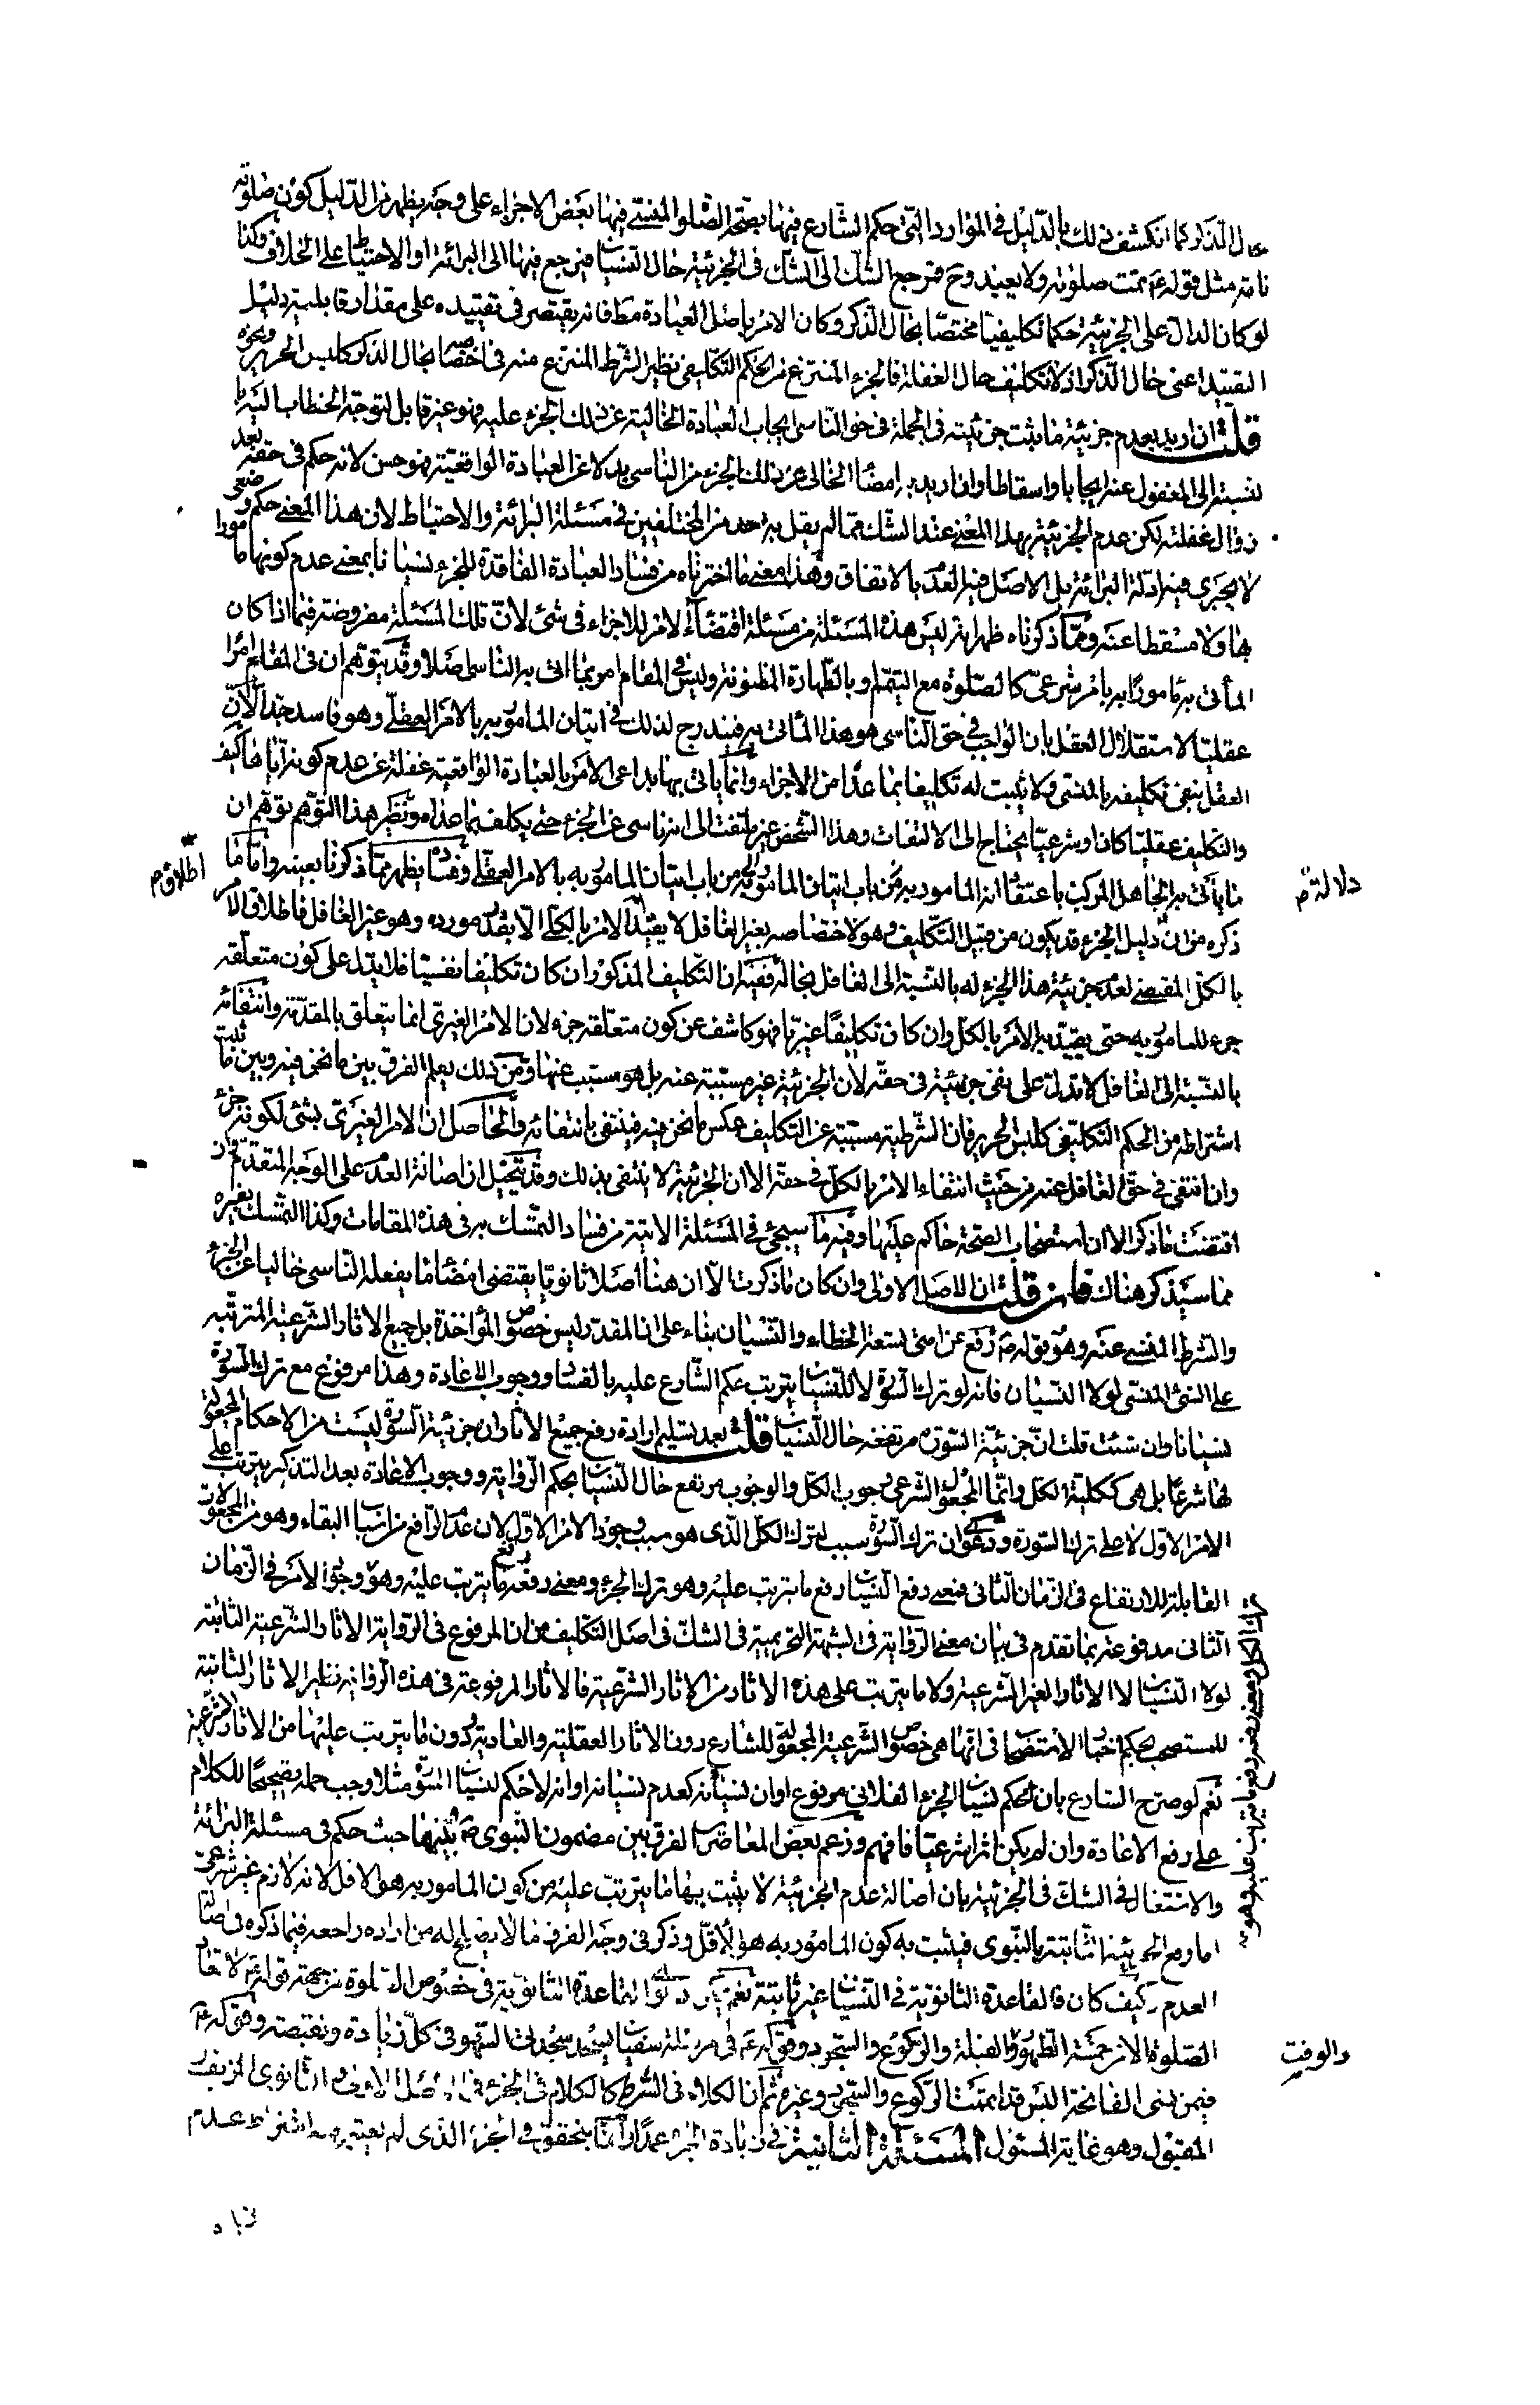 حال الذكر كما انكشف ذلك بالدّليل في الموارد التي حكم الشّارع فيها بصحّة الصّلوة المنسىّ فيها بعض الاجزاء على وجه يظهر من الدّليل كون صلوته
تامّة مثل قوله ع تمّت صلوته ولا يعيد وح فمرجع الشك الى الشك في الجزئية حال النسيان فيرجع فيها الى البرائة او الاحتياط على الخلاف وكذا
لو كان الدالّ على الجزئية حكما تكليفيا مختصّا بحال الذكر وكان الامر باصل العبادة مطلقا فانه يقتصر في تقييده على مقدار قابلية دليل
التقييد اعنى حال الذكر اذ لا تكليف حال الغفلة فالجزء المنتزع من الحكم التكليفى نظير الشرط المنتزع منه في اختصاصه بحال الذكر كلبس الحرير ونحوه
قلت ان اريد بعدم جزئية ما ثبت جزئيته في الجملة في حق الناسى ايجاب العبادة الخالية عن ذلك الجزء عليه فهو غير قابل لتوجّه الخطاب اليه با
لنسبة الى المغفول عنه ايجابا واسقاطا وان اريد به امضاء الخالى عن ذلك الجزء من الناسى بدلا عن العبادة الواقعيّة فهو حسن لانه حكم في حقه بعد
زوال غفلته لكن عدم الجزئية بهذا المعنى عند الشك مما لم يقل به احد من المختلفين في مسئلة البرائة والاحتياط لان هذا المعنى حكم وضعى
لا يجرى فيه ادلة البرائة بل الاصل فيه العدم بالاتفاق وهذا معنى ما اخترناه من فساد العبادة الفاقدة للجزء نسيانا بمعنى عدم كونها مامورا
بها ولا مسقطا عنه وممّا ذكرناه ظهر انه ليس هذه المسئلة من مسئلة اقتضاء الامر للاجزاء في شئ لانّ تلك المسئلة مفروضة فيما اذا كان
المأتى به مامورا به بامر شرعىّ كالصّلوة مع التيمّم او بالطّهارة المظنونة وليس في المقام امر بما اتى به الناسى اصلا وقد يتوهم ان في المقام امرا
عقليّا لاستقلال العقل بان الواجب في حق الناسى هو هذا المأتى به فيندرج لذلك في اتيان المامور به بالامر العقلّى وهو فاسد جدا لانّ
العقل ينفى تكليفه بالمنسىّ ولا يثبت له تكليفا بما عدا من الاجزاء وانما ياتى بها بداعى الامر بالعبادة الواقعية غفلة عن عدم كونه اياها كيف
والتكليف عقليّا كان او شرعيّا يحتاج الى الالتفات وهذا الشّخص غير ملتفت الى انه ناسى عن الجزء حتى يكلف بما عداه ونظير هذا التوّهم توّهم ان
ما يأتى به الجاهل المركب باعتقاد انه المامور به من باب اتيان المامور به بالامر العقلى وفساده يظهر ممّا ذكرنا بعينه وامّا ما
ذكره من انّ دليل الجزء قد يكون من قبيل التّكليف وهو لاختصاصه بغير الغافل لا يقيّد الامر بالكلّ الّا بقدر مورده وهو غير الغافل فاطلاق الامر
بالكلّ المقتضى لعدم جزئية هذا الجزء له بالنّسبة الى الغافل بحاله ففيه ان التّكليف المذكور ان كان تكليفا نفسيّا فلا يدلّ على كون متعلّقه
جزء للمامور به حتى يقيّد به الامر بالكلّ وان كان تكليفًا غيريّا فهو كاشف عن كون متعلّقه جزء لان الامر الغيرىّ انما يتعلق بالمقدّمة وانتفائه
بالنّسبة الى الغافل لا يدلّ على نفى جزئيته في حقّه لان الجزئية غير مسبّبة عنه بل هو مسبّب عنها ومن ذلك يعلم الفرق بين ما نحن فيه وبين ما ثبت
اشتراطه من الحكم التكليفى كلبس الحرير فان الشرطية مسبّبة عن التكليف عكس ما نحن فيه فينتفى بانتفائه والحاصل ان الامر الغيرىّ بشئ لكونه جزء
وان انتفى في حق الغافل عنه من حيث انتفاء الامر بالكلّ في حقه الا ان الجزئية لا ينتفى بذلك وقد يتخيّل ان اصالة العدم على الوجه المتقدّم وان
اقتضت ما ذكر الا ان استصحاب الصّحة حاكم عليها وفيه ما سيجئ في المسئلة الاتية من فساد التمسّك به في هذه المقامات وكذا التمسّك بغيره
مما سيذكر هناك فان قلت ان الاصل الاولى وان كان ما ذكرت الّا ان هنا اصلا ثانويّا يقتضى امضاء ما يفعله الناسى خاليا عن الجزء
والشرط المنسى عنه وهو قوله ص رفع عن امتى تسعة الخطاء والنّسيان بناء على ان المقدّر ليس خصوص المؤاخذة بل جميع الاثار الشّرعية المترتّبة
على الشئ المنسىّ لولا النّسيان فانه لو ترك السّورة لا للنّسيان يترتب حكم الشّارع عليه بالفساد ووجوب الاعادة وهذا مرفوع مع ترك السّورة
نسيانا وان شئت قلت انّ جزئية السّورة مرتفعة حال النّسيان قلت بعد تسليم ارادة رفع جميع الاثار ان جزئية السّورة ليست من الاحكام المجعولة
لها شرعا بل هى ككلية الكل وانّما المجعول الشّرعى وجوب الكلّ والوجوب مرتفع حال النّسيان بحكم الرّواية ووجوب الاعادة بعد التذكر يترتب على
الامر الاوّل لا على ترك السّورة ودعوى ان ترك السّورة سبب لترك الكلّ الّذى هو سبب وجود الامر الاوّل لان عدم الرّافع من اسباب البقاء وهو من المجعولات
القابلة للارتفاع في الزّمان الثانى فمعنى رفع النّسيان رفع ما يترتب عليه وهو ترك الجزء ومعنى رفعه رفع ما يترتب عليه وهو وجود الامر في الزّمان
الثانى مدفوعة بما تقدم في بيان معنى الرّواية في الشبهة التحريمية في الشكّ في اصل التّكليف من ان المرفوع في الرّواية الاثار الشّرعية الثّابتة
لولا النّسيان لا الاثار الغير الشّرعية ولا ما يترتب على هذه الاثار من الاثار الشّرعية فالاثار المرفوعة في هذه الرّواية نظير الاثار الثّابتة
للمستصحب بحكم اخبار الاستصحاب في انّها هى خصوص الشّرعية المجعولة للشارع دون الاثار العقلية والعادية ودون ما يترتب عليها من الاثار الشّرعية
نعم لو صرح الشارع بان حكم نسيان الجزء الفلانى مرفوع او ان نسيانه كعدم نسيانه او انه لا حكم لنسيان السّورة مثلا وجب حمله تصحيحًا للكلام
على رفع الاعادة وان لم يكن اثرا شرعيّا فافهم وزعم بعض المعاصرين الفرق بين مضمون النّبوى ص بينها حيث حكم في مسئلة البرائة
والاشتغال في الشك في الجزئية بان اصالة عدم الجزئية لا يثبت بها ما يترتّب عليه من كون المامور به هو الاقل لانه لازم غير شرعى
اما رفع الجزئية الثّابتة بالنّبوى فيثبت به كون المامور به هو الاقلّ وذكر في وجه الفرق ما لا يصلح له من اراده راجعه فيما ذكره في اصالة
العدم وكيف كان فالقاعدة الثانوّية في النّسيان غير ثابتة نعم القاعدة الثانوّية في خصوص الصّلوة من جهة قوله ع لا تعاد
الصّلوة الا من خمسة الطّهور والقبلة والرّكوع والسّجود وقوله ع في مرسلة سفيان يسجد سجدتى السّهو في كلّ زيادة ونقيصة وقوله ع
فيمن نسى الفاتحة اليس قد اتممت الرّكوع والسّجود وغيره ثم ان الكلام في الشّرط كالكلام في الجزء في الاصل الاوّلى والثّانوى المزيف
المقبول وهو غاية المسئول المسئلة الثّانية في زيادة الجزء عمدًا وانّما يتحقق في الجزء الّذى لم يعتبر فيه اشتراط عدم
دلالة م
اطلاق م
ترك الكل ومعنى رفعه رفع ما يترتب عليه وهو
والوقت
زياده